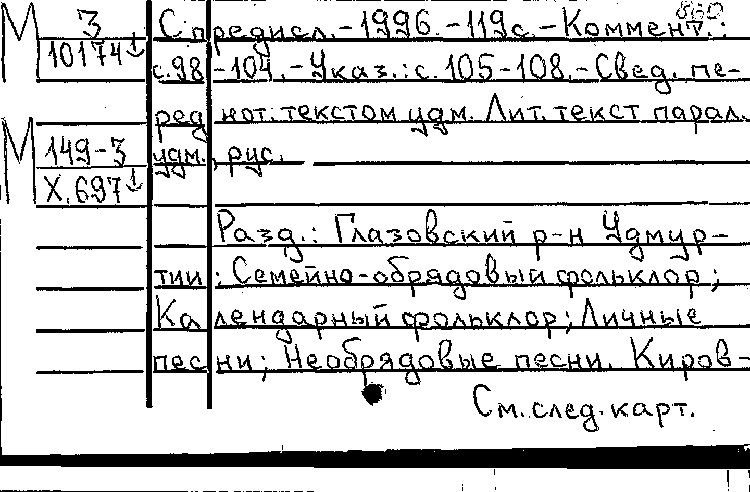 860
М З
10174↓
М 149-3
Х.697↓
С предисл.-1996.-119с.-Коммент.:
с.98-104.-Указ.:с.105-108.-Свед. пе-
ред нот. текстом удм. Лит. текст парал.
удм., рус.
Разд.: Глазовский р-н Удмур-
тии; Семейно-обрядовый фольклор;
Календарный фольклор; Личные
песни; Необрядовые песни. Киров-
См. след. карт.